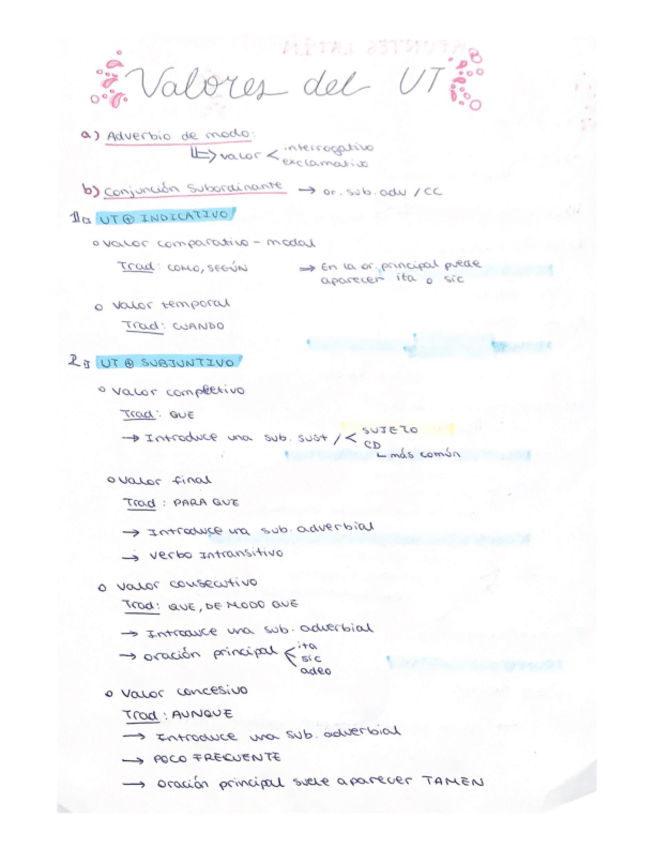 APUNTES LATÍN
Valores del UT
a) Adverbio de modo:
↳ valor < interrogativo
exclamativo
b) Conjunción Subordinante → or. sub. adv / CC
1. UT ⊕ INDICATIVO
o valor comparativo - modal
Trad: COMO, SEGÚN → En la or. principal puede
aparecer ita o sic
o valor temporal
Trad: CUANDO
2. UT ⊕ SUBJUNTIVO
o valor completivo
Trad: QUE
→ Introduce una sub. sust / < SUJETO
CD
↳ más común
o valor final
Trad: PARA QUE
→ Introduce una sub. adverbial
→ verbo intransitivo
o valor consecutivo
Trad: QUE, DE MODO QUE
→ Introduce una sub. adverbial
→ oración principal < ita
sic
adeo
o valor concesivo
Trad: AUNQUE
→ Introduce una sub. adverbial
→ POCO FRECUENTE
→ oración principal suele aparecer TAMEN